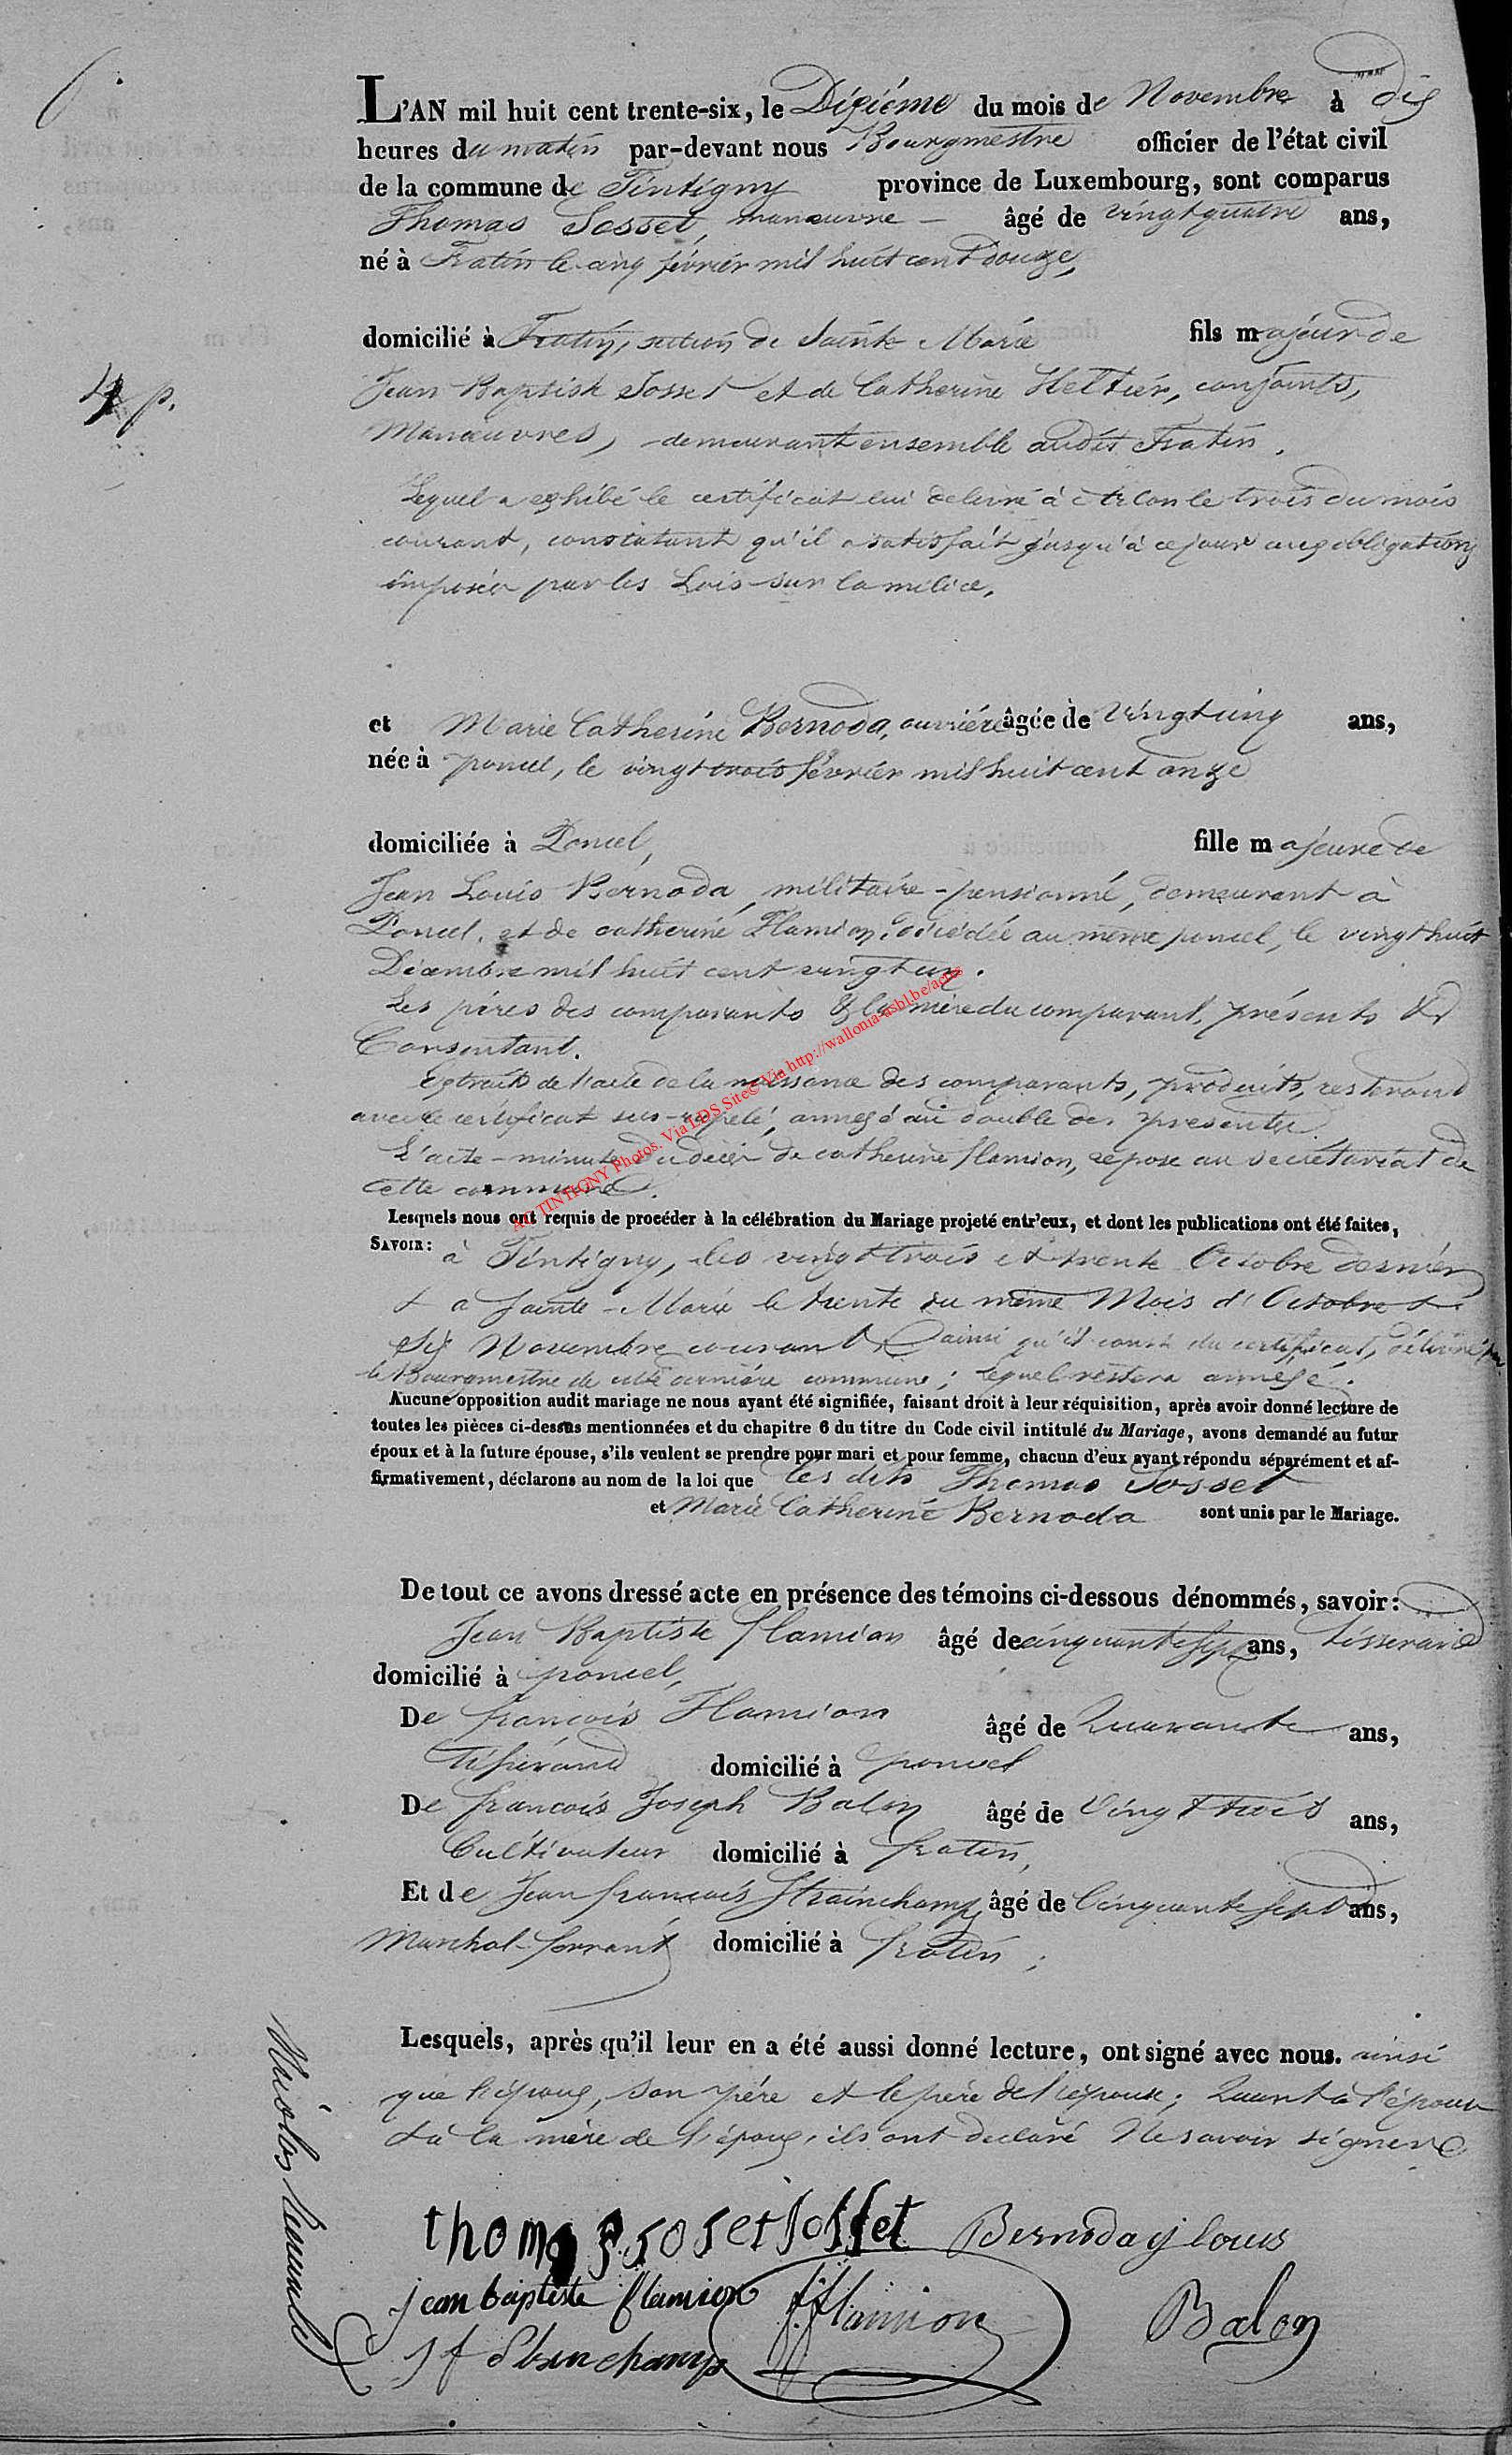 L'AN mil huit cent trente-six, le Dixiéme du mois de Novembre à dix
heures du matin par-devant nous Bourgmestre officier de l'état civil
de la commune de Tintigny province de Luxembourg, sont comparus
Thomas Sosset, manœuvre âgé de vingt quatre ans,
né à Fratin le cinq février mil huit cent douze,
domicilié à Fratin, section de Sainte Marie fils majeur de
Jean Baptiste Sosset et de Catherine conjoints,
4 p.
Manœuvres, demeurant ensemble audit Fratin.
Lequel a exhibé le certificat lui delivré à Arlon le trois du mois
courant, constatant qu'il a satisfait jusqu'à ce jour aux obligations
imposées par les Lois sur la milice.
et Marie Catherine Bernoda, ouvrière âgée de vingt cinq ans,
née à poncel, le vingt trois février mil huit cent onze
domiciliée à Poncel, fille majeure de
Jean Louis Bernoda, militaire-pensionné, demeurant à
Poncel, et de catherine Flamion, décédée au même poncel, le vingt huit
Décembre mil huit cent vingt
Les pères des comparants & la mère du comparant, présents &
Consentant.
Extraits de l'acte de la naissance des comparants, produits, resteront
avec le certificat sus-rapelé, annexé au double des présentes
L'acte-minute du décès de catherine flamion, repose au secrétariat de
cette commune.
AC TINTIGNY Photos. Via LDS Site© Via http://wallonia-asbl.be/actes
Lesquels nous ont requis de procéder à la célébration du Mariage projeté entr'eux, et dont les publications ont été faites,
SAVOIR: à Tintigny, les vingt trois et trente Octobre dernier
& a Sainte-Marie le trente du même Mois d'Octobre &
Six Novembre courant ainsi qu'il conste du certificat, délivré par
le Bourgmestre de cette dernière commune; lequel restera annexé.
Aucune opposition audit mariage ne nous ayant été signifiée, faisant droit à leur réquisition, après avoir donné lecture de
toutes les pièces ci-dessus mentionnées et du chapitre 6 du titre du Code civil intitulé du Mariage, avons demandé au futur
époux et à la future épouse, s'ils veulent se prendre pour mari et pour femme, chacun d'eux ayant répondu séparément et af-
firmativement, déclarons au nom de la loi que les dits Thomas Sosset
et Marie Catherine Bernoda sont unis par le Mariage.
De tout ce avons dressé acte en présence des témoins ci-dessous dénommés, savoir:
Jean Baptiste flamion âgé de cinquante sept ans, tisserand
domicilié à poncel,
De françois Flamion âgé de Quarante ans,
tisserand domicilié à poncel
De françois Joseph Balon âgé de Vingt trois ans,
Cultivateur domicilié à fratin,
Et de Jean françois Strainchamps âgé de Cinquante sept ans,
Marchal-ferrant domicilié à fratin;
Lesquels, après qu'il leur en a été aussi donné lecture, ont signé avec nous. ainsi
que l'époux, son père et le père de l'épouse; Quant à l'épouse
& à la mère de l'époux, ils ont declaré Ne savoir signer
thomas soset sosset Bernoda j louis
jean baptiste flamion fflamion Balon
j f Strenchamp